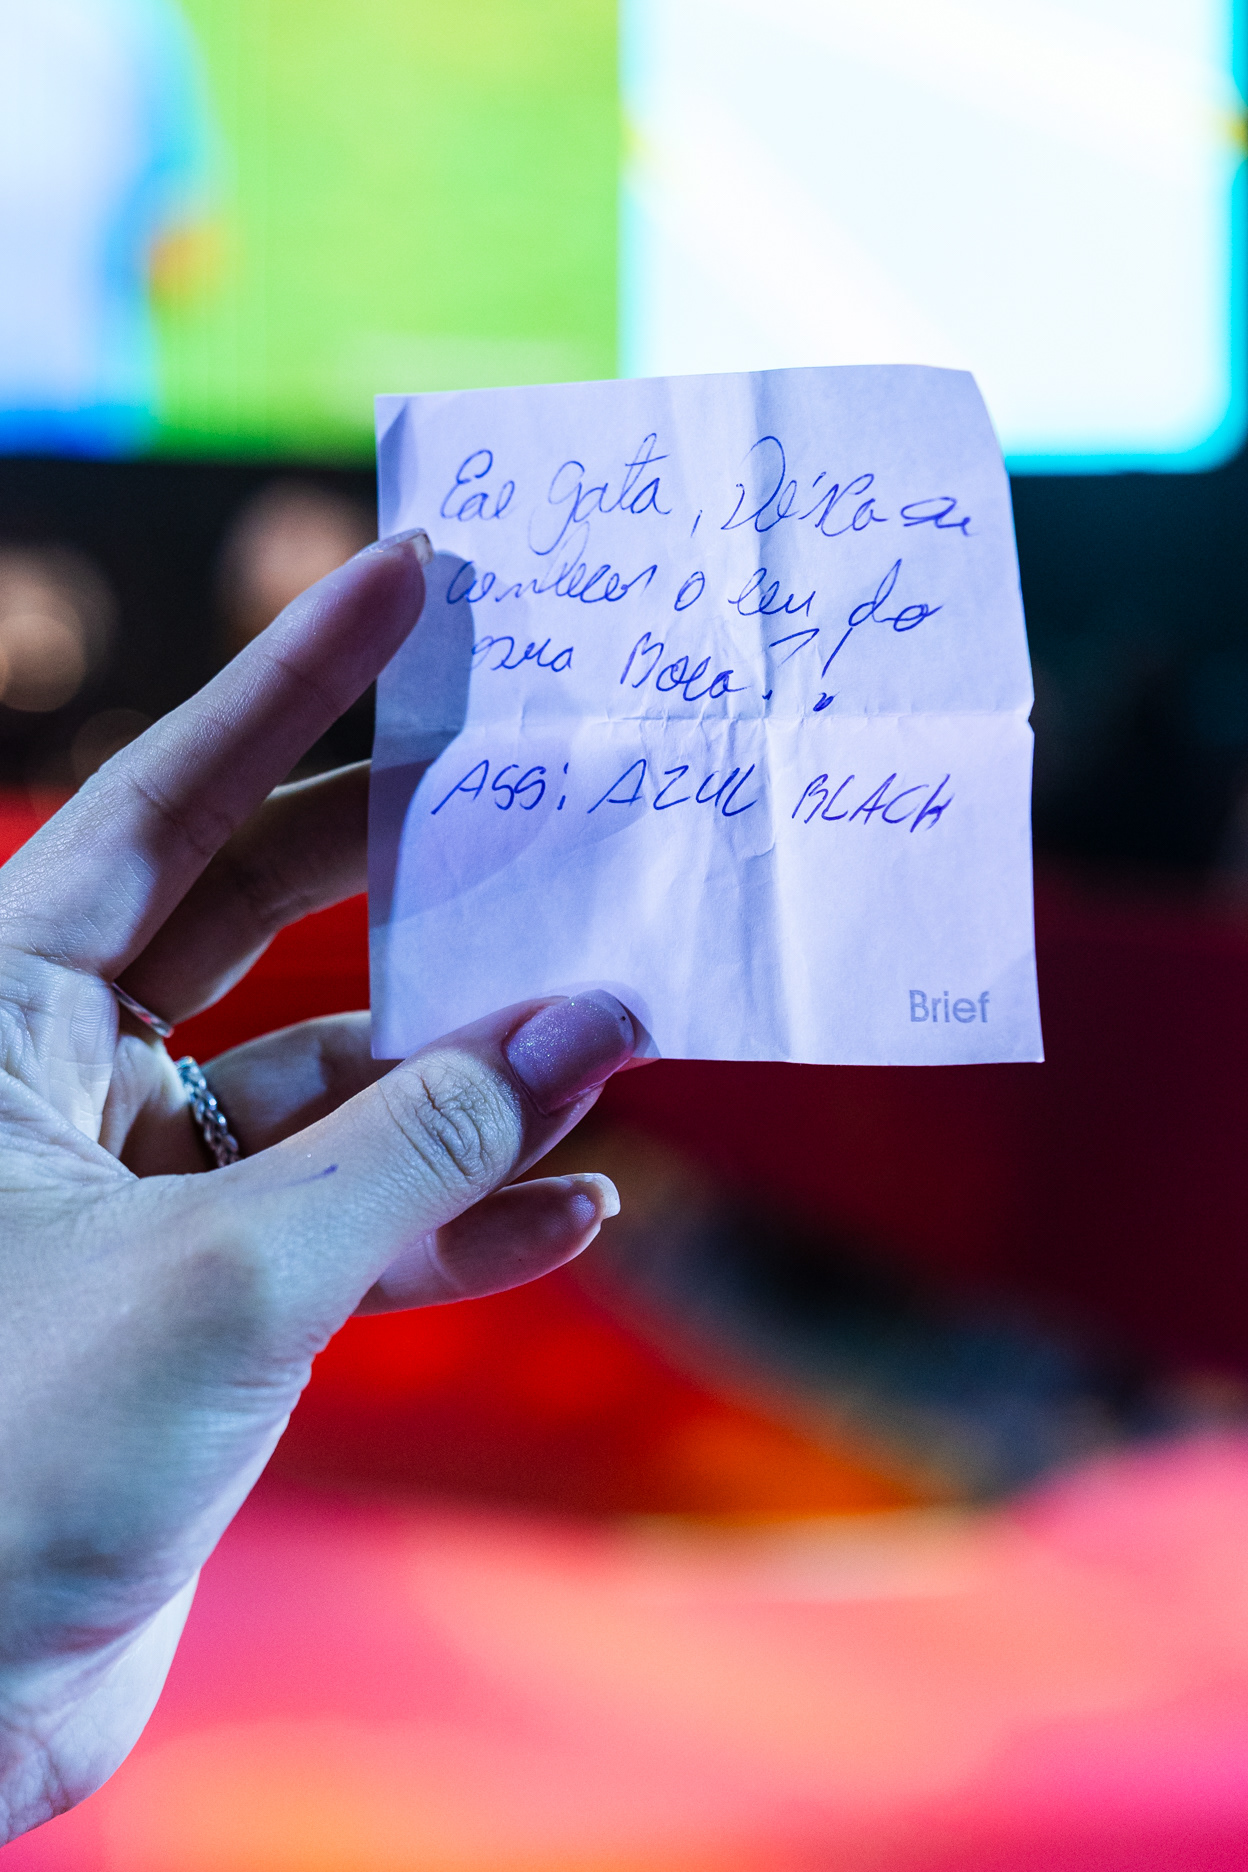 Eae gata, Deixa eu
conhecer o céu da
sua Boca?!
ASS: AZUL BLACK
Brief